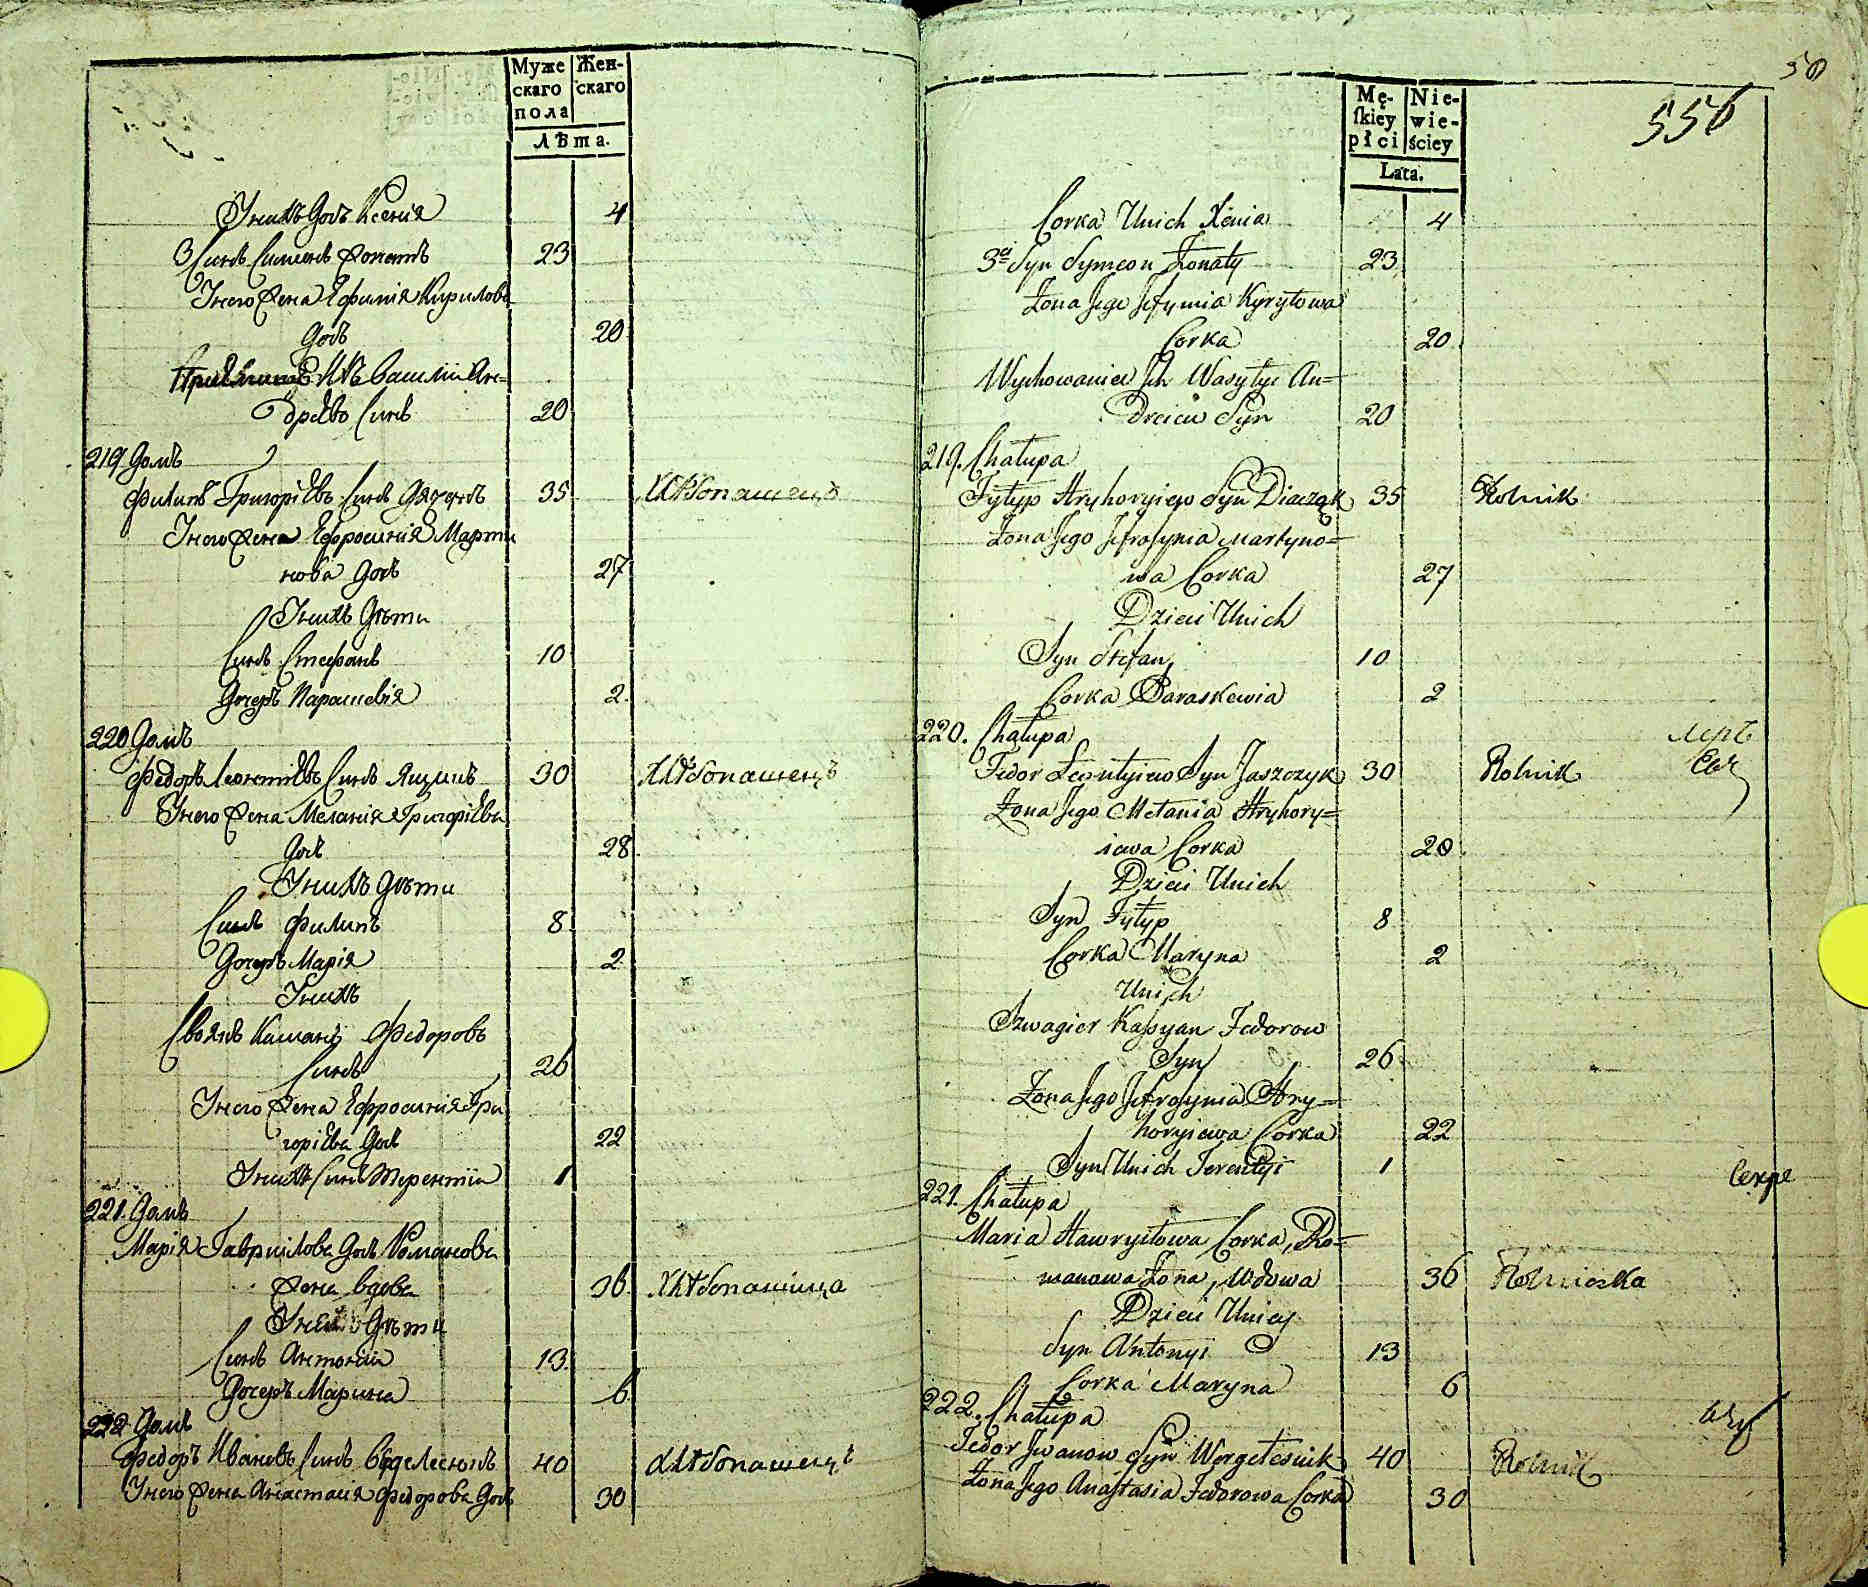 Муже
скаго
пола
Жен-
скаго
Лѣта.
Унихъ Дочъ Ксенія 4
3 Синъ Симеонъ Жонатъ 23
Унего Жена Ефимія Кирилова
Дочъ 20
Ихъ Василій Ан=
дрѣевъ Синъ 20
219 Домъ
Филипъ Григоріевъ Синъ Дячукъ 35 Хлѣбопашецъ
Унего Жена Ефросинія Марти
нова Дочъ 27
Унихъ Дѣти
Синъ Стефанъ 10
Дочеръ Параскевія 2.
220 Домъ
Федоръ Леонтіевъ Синъ Ящикъ 30 Хлѣбопашецъ
Унего Жена Меланія Григоріева
Дочъ 28
Унихъ Дѣти
Синъ Филипъ 8
Дочеръ Марія 2
Унихъ
Своякъ Касіянъ Федоровъ
Синъ 26
Унего Жена Ефросинія Гри
горіева Дочъ 22
Унихъ Синъ Терентій 1
221. Домъ
Марія Гаврилова Дочъ Романова
Жена вдова 36 Хлѣбопашица
Унея Дѣти
Синъ Антоній 13
Дочеръ Марина 6
222 Домъ
Федоръ Ивановъ Синъ 40 Хлѣбопашецъ
Унего Жена Анастасія Федорова Дочъ 30
50
556
Mę-
ſkiey
płci
Nie-
wie-
ściey
Lata.
Corka Unich Xenia 4
3ci Syn Symeon Żonaty 23
Żona Jego Jefymia Kyryłowa
Corka 20
Wychowaniec Ich Wasylyi An=
dreiew Syn 20
219. Chałupa
Fyłyp Hryhoryiew Syn Diaczuk 35 Rolnik
Żona Jego Jefrosynia Martyno=
wa Corka 27
Dzieci Unich
Syn Stefan 10
Corka Paraskewia 2
220. Chałupa
Fedor Leontyiew Syn Jaszczyk 30 Rolnik
Żona Jego Mełania Hryhory=
iewa Corka 28
Dzieci Unich
Syn Fyłyp 8
Corka Maryna 2
Unich
Szwagier Kasyan Fedorow
Syn 26
Żona Jego Jefrosynia Hry=
horyiewa Corka 22
Syn Unich Terentyi 1
221. Chałupa
Maria Hawryłowa Corka, Ro=
manowa Żona, Wdowa 36 Rolniczka
Dzieci Uniey
Syn Antonyi 13
Corka Maryna 6
222. Chałupa
Fedor Iwanow Syn Wergełesiuk 40 Rolnik
Żona Jego Anastasia Fedorowa Corka 30